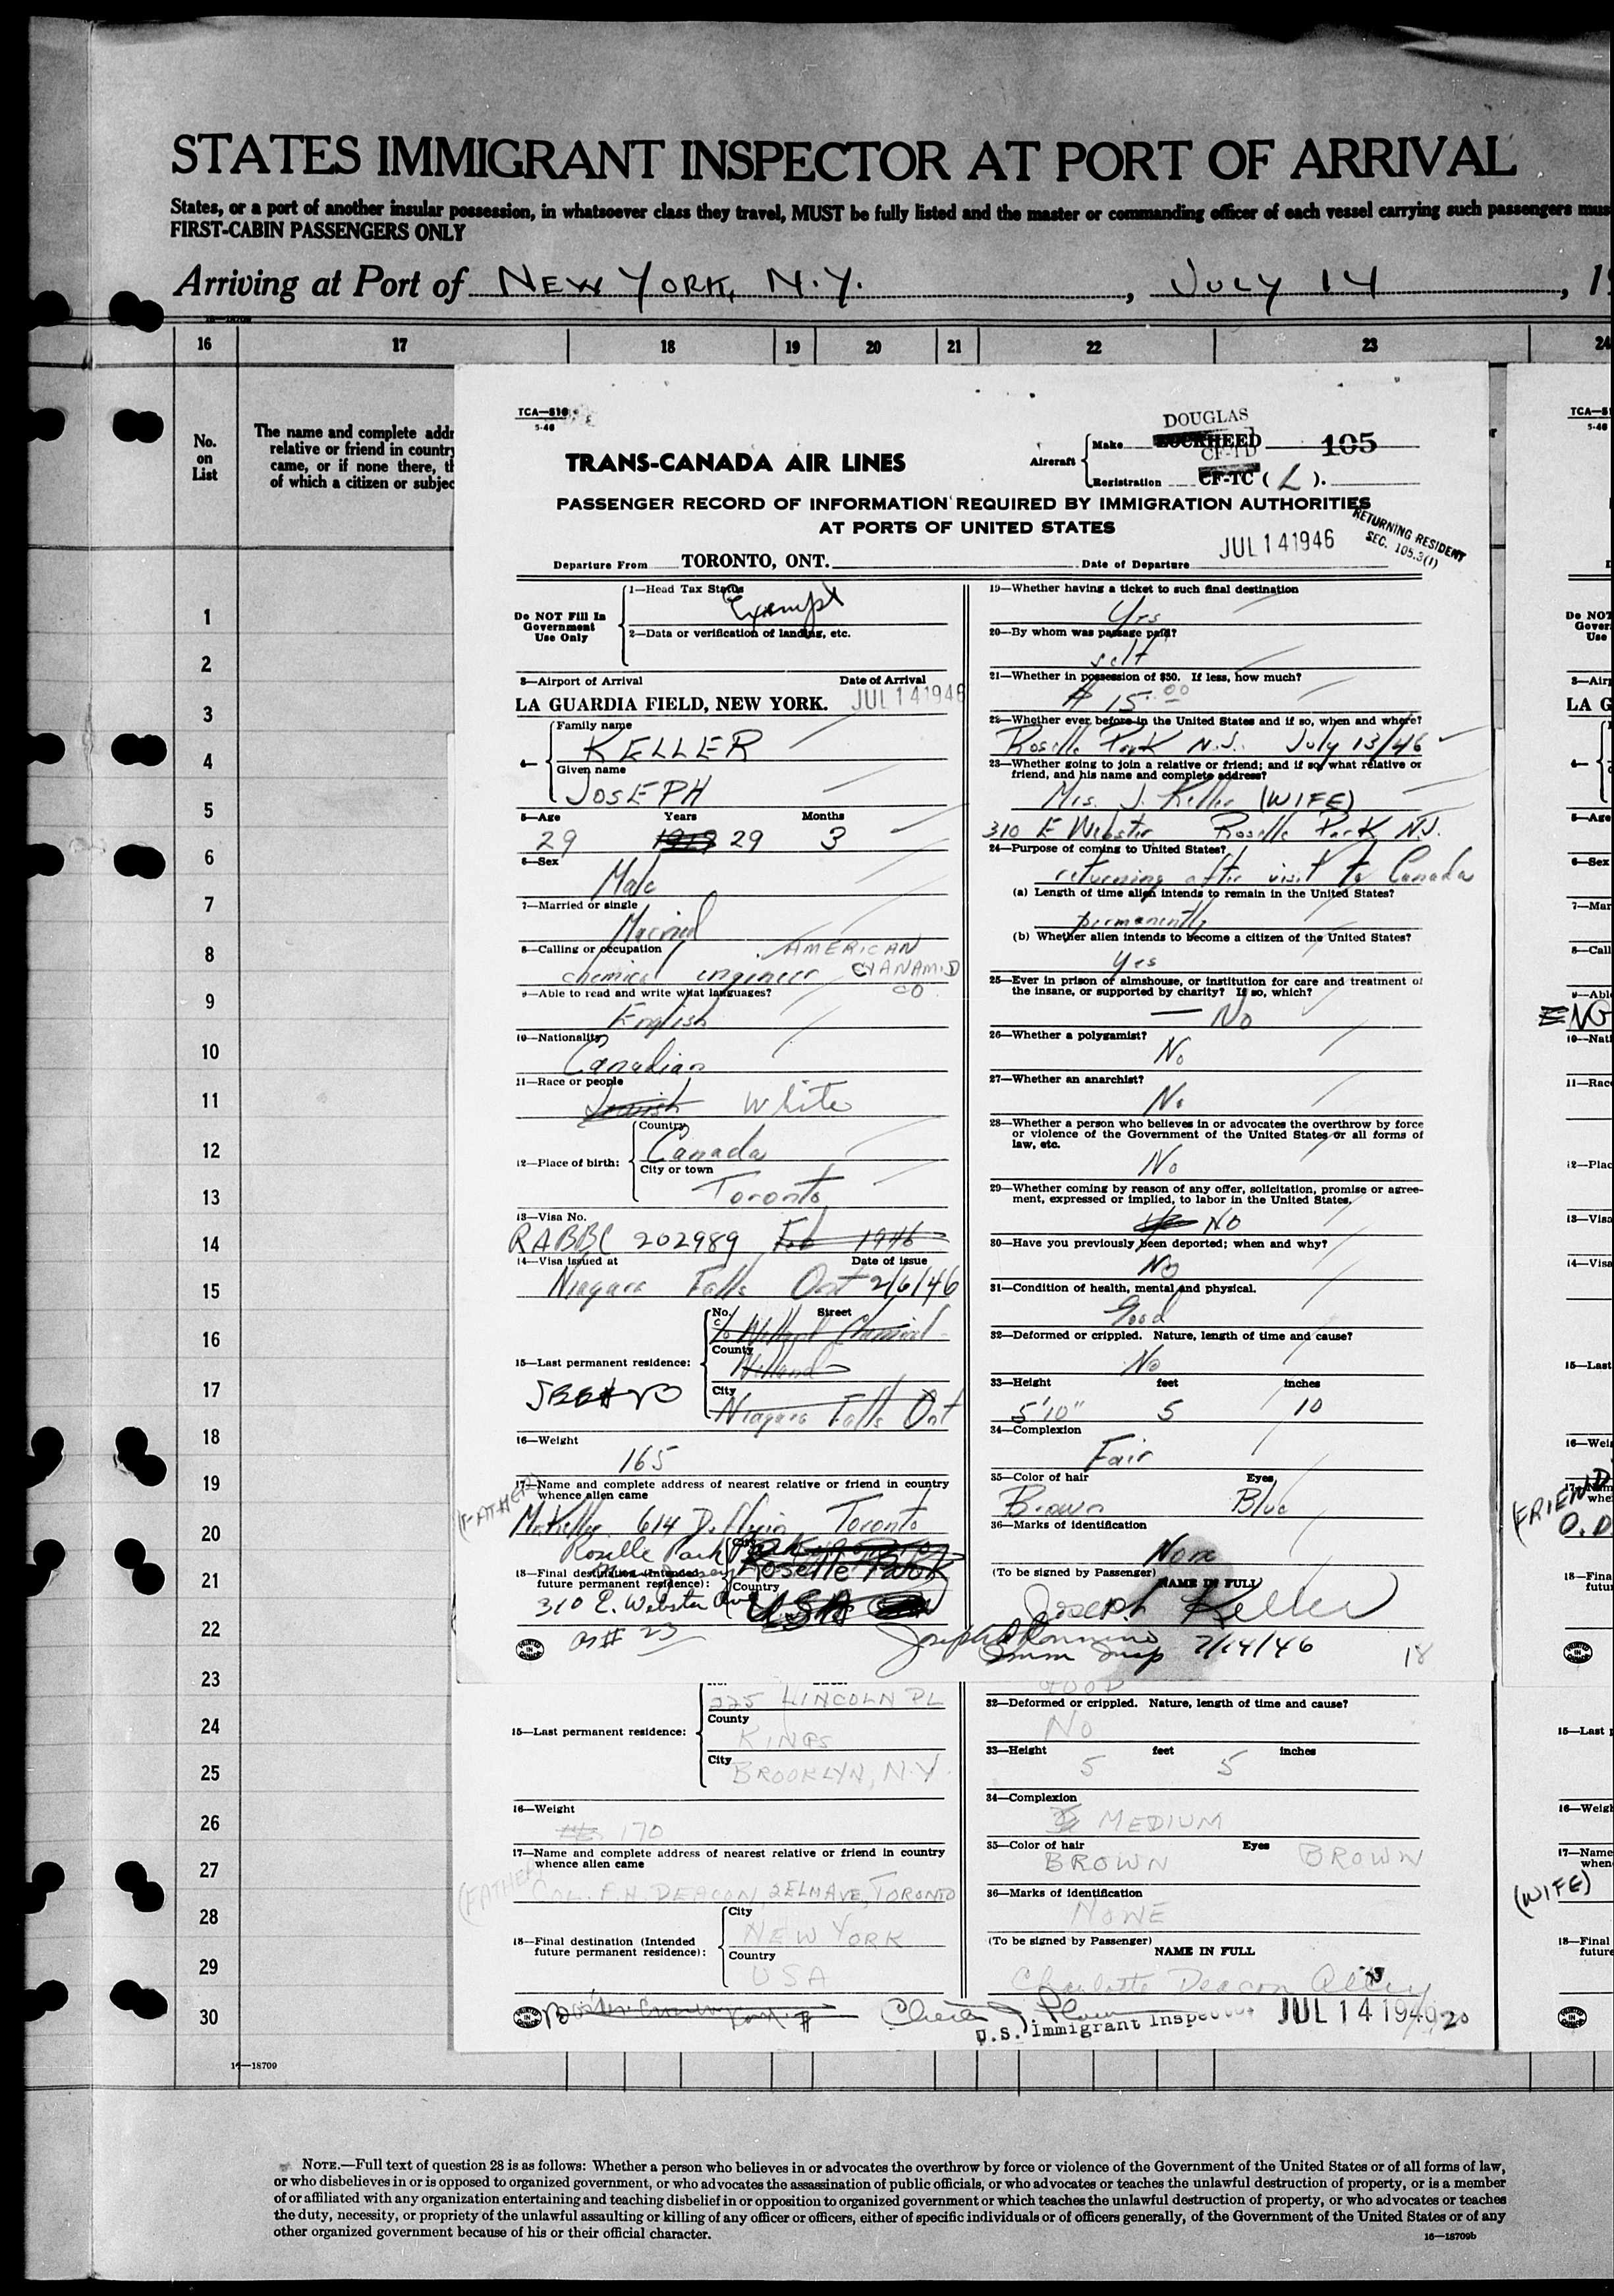 STATES IMMIGRANT INSPECTOR AT PORT OF ARRIVAL
States, or a port of another insular possession, in whatsoever class they travel, MUST be fully listed and the master or commanding officer of each vessel carrying such passengers mus
FIRST-CABIN PASSENGERS ONLY
Arriving at Port of NEW YORK, N.Y. , JULY 14 , 1
16 17 18 19 20 21 22 23 24
No. on List
The name and complete addr
relative or friend in country
came, or if none there, th
of which a citizen or subjec
1
2
3
4
5
6
7
8
9
10
11
12
13
14
15
16
17
18
19
20
21
22
23
24
25
26
27
28
29
30
16—18709
TCA—810
5-46
TRANS-CANADA AIR LINES
DOUGLAS
Aircraft Make LOCKHEED 105
CF-TD
Registration CF-TC ( L ).
PASSENGER RECORD OF INFORMATION REQUIRED BY IMMIGRATION AUTHORITIES
AT PORTS OF UNITED STATES
RETURNING RESIDENT
SEC. 105.3(1)
Departure From TORONTO, ONT. Date of Departure JUL 14 1946
Do NOT Fill In
Government
Use Only
1—Head Tax Status
Exempt
2—Data or verification of landing, etc.
3—Airport of Arrival Date of Arrival
LA GUARDIA FIELD, NEW YORK. JUL 14 1946
4— Family name
KELLER
Given name
JOSEPH
5—Age Years Months
29 29 3
6—Sex
Male
7—Married or single
Married
8—Calling or occupation AMERICAN
chemical engineer CYANAMID
CO
9—Able to read and write what languages?
English
10—Nationality
Canadian
11—Race or people
Jewish White
12—Place of birth: Country
Canada
City or town
Toronto
13—Visa No.
202989 Feb 1946
14—Visa issued at Date of issue
Niagara Falls Ont 2/6/46
15—Last permanent residence: No. Street
c/o Welland Chemical
County
Welland
City
Niagara Falls Ont
16—Weight
165
17—Name and complete address of nearest relative or friend in country
whence alien came
(FATHER)
M. Keller 614 Dufferin Toronto
Roselle Park
18—Final destination (Intended
future permanent residence): City
Roselle Park
Country
USA
310 E. Webster Ave
as # 23
PRINTED IN CANADA
19—Whether having a ticket to such final destination
Yes
20—By whom was passage paid?
self
21—Whether in possession of $50. If less, how much?
$ 15.00
22—Whether ever before in the United States and if so, when and where?
Roselle Park N.J. July 13/46
23—Whether going to join a relative or friend; and if so, what relative or
friend, and his name and complete address?
Mrs. J. Keller (WIFE)
310 E Webster Roselle Park N.J.
24—Purpose of coming to United States?
returning after visit to Canada
(a) Length of time alien intends to remain in the United States?
permanently
(b) Whether alien intends to become a citizen of the United States?
Yes
25—Ever in prison or almshouse, or institution for care and treatment of
the insane, or supported by charity? If so, which?
— No
26—Whether a polygamist?
No
27—Whether an anarchist?
No
28—Whether a person who believes in or advocates the overthrow by force
or violence of the Government of the United States or all forms of
law, etc.
No
29—Whether coming by reason of any offer, solicitation, promise or agree-
ment, expressed or implied, to labor in the United States.
NO
30—Have you previously been deported; when and why?
No
31—Condition of health, mental and physical.
Good
32—Deformed or crippled. Nature, length of time and cause?
No
33—Height feet inches
5'10" 5 10
34—Complexion
Fair
35—Color of hair Eyes
Brown Blue
36—Marks of identification
None
(To be signed by Passenger)
NAME IN FULL
Joseph Keller
Imm Insp 7/14/46 18
15—Last permanent residence: 225 LINCOLN PL
County
KINGS
City
BROOKLYN, N.Y.
16—Weight
170
17—Name and complete address of nearest relative or friend in country
whence alien came
(FATHER) COL. F.H. DEACON, 2 ELM AVE, TORONTO
18—Final destination (Intended
future permanent residence): City
NEW YORK
Country
USA
PRINTED IN CANADA
GOOD
32—Deformed or crippled. Nature, length of time and cause?
No
33—Height feet inches
5 5
34—Complexion
MEDIUM
35—Color of hair Eyes
BROWN BROWN
36—Marks of identification
NONE
(To be signed by Passenger)
NAME IN FULL
Charlotte Deacon
U.S. Immigrant Inspector JUL 14 1946 20
TCA—81
5-46
Do NOT
Gover
Use
3—Airp
LA G
4—
5—Age
6—Sex
7—Mar
8—Call
9—Abl
ENG
10—Nati
11—Race
12—Plac
13—Visa
14—Visa
15—Last
16—Weig
17—Nam
whe
(FRIEND
O.D
18—Fina
futu
15—Last p
16—Weigh
17—Name
when
(WIFE)
18—Final
future
NOTE.—Full text of question 28 is as follows: Whether a person who believes in or advocates the overthrow by force or violence of the Government of the United States or of all forms of law,
or who disbelieves in or is opposed to organized government, or who advocates the assassination of public officials, or who advocates or teaches the unlawful destruction of property, or is a member
of or affiliated with any organization entertaining and teaching disbelief in or opposition to organized government or which teaches the unlawful destruction of property, or who advocates or teaches
the duty, necessity, or propriety of the unlawful assaulting or killing of any officer or officers, either of specific individuals or of officers generally, of the Government of the United States or of any
other organized government because of his or their official character.
16—18709b